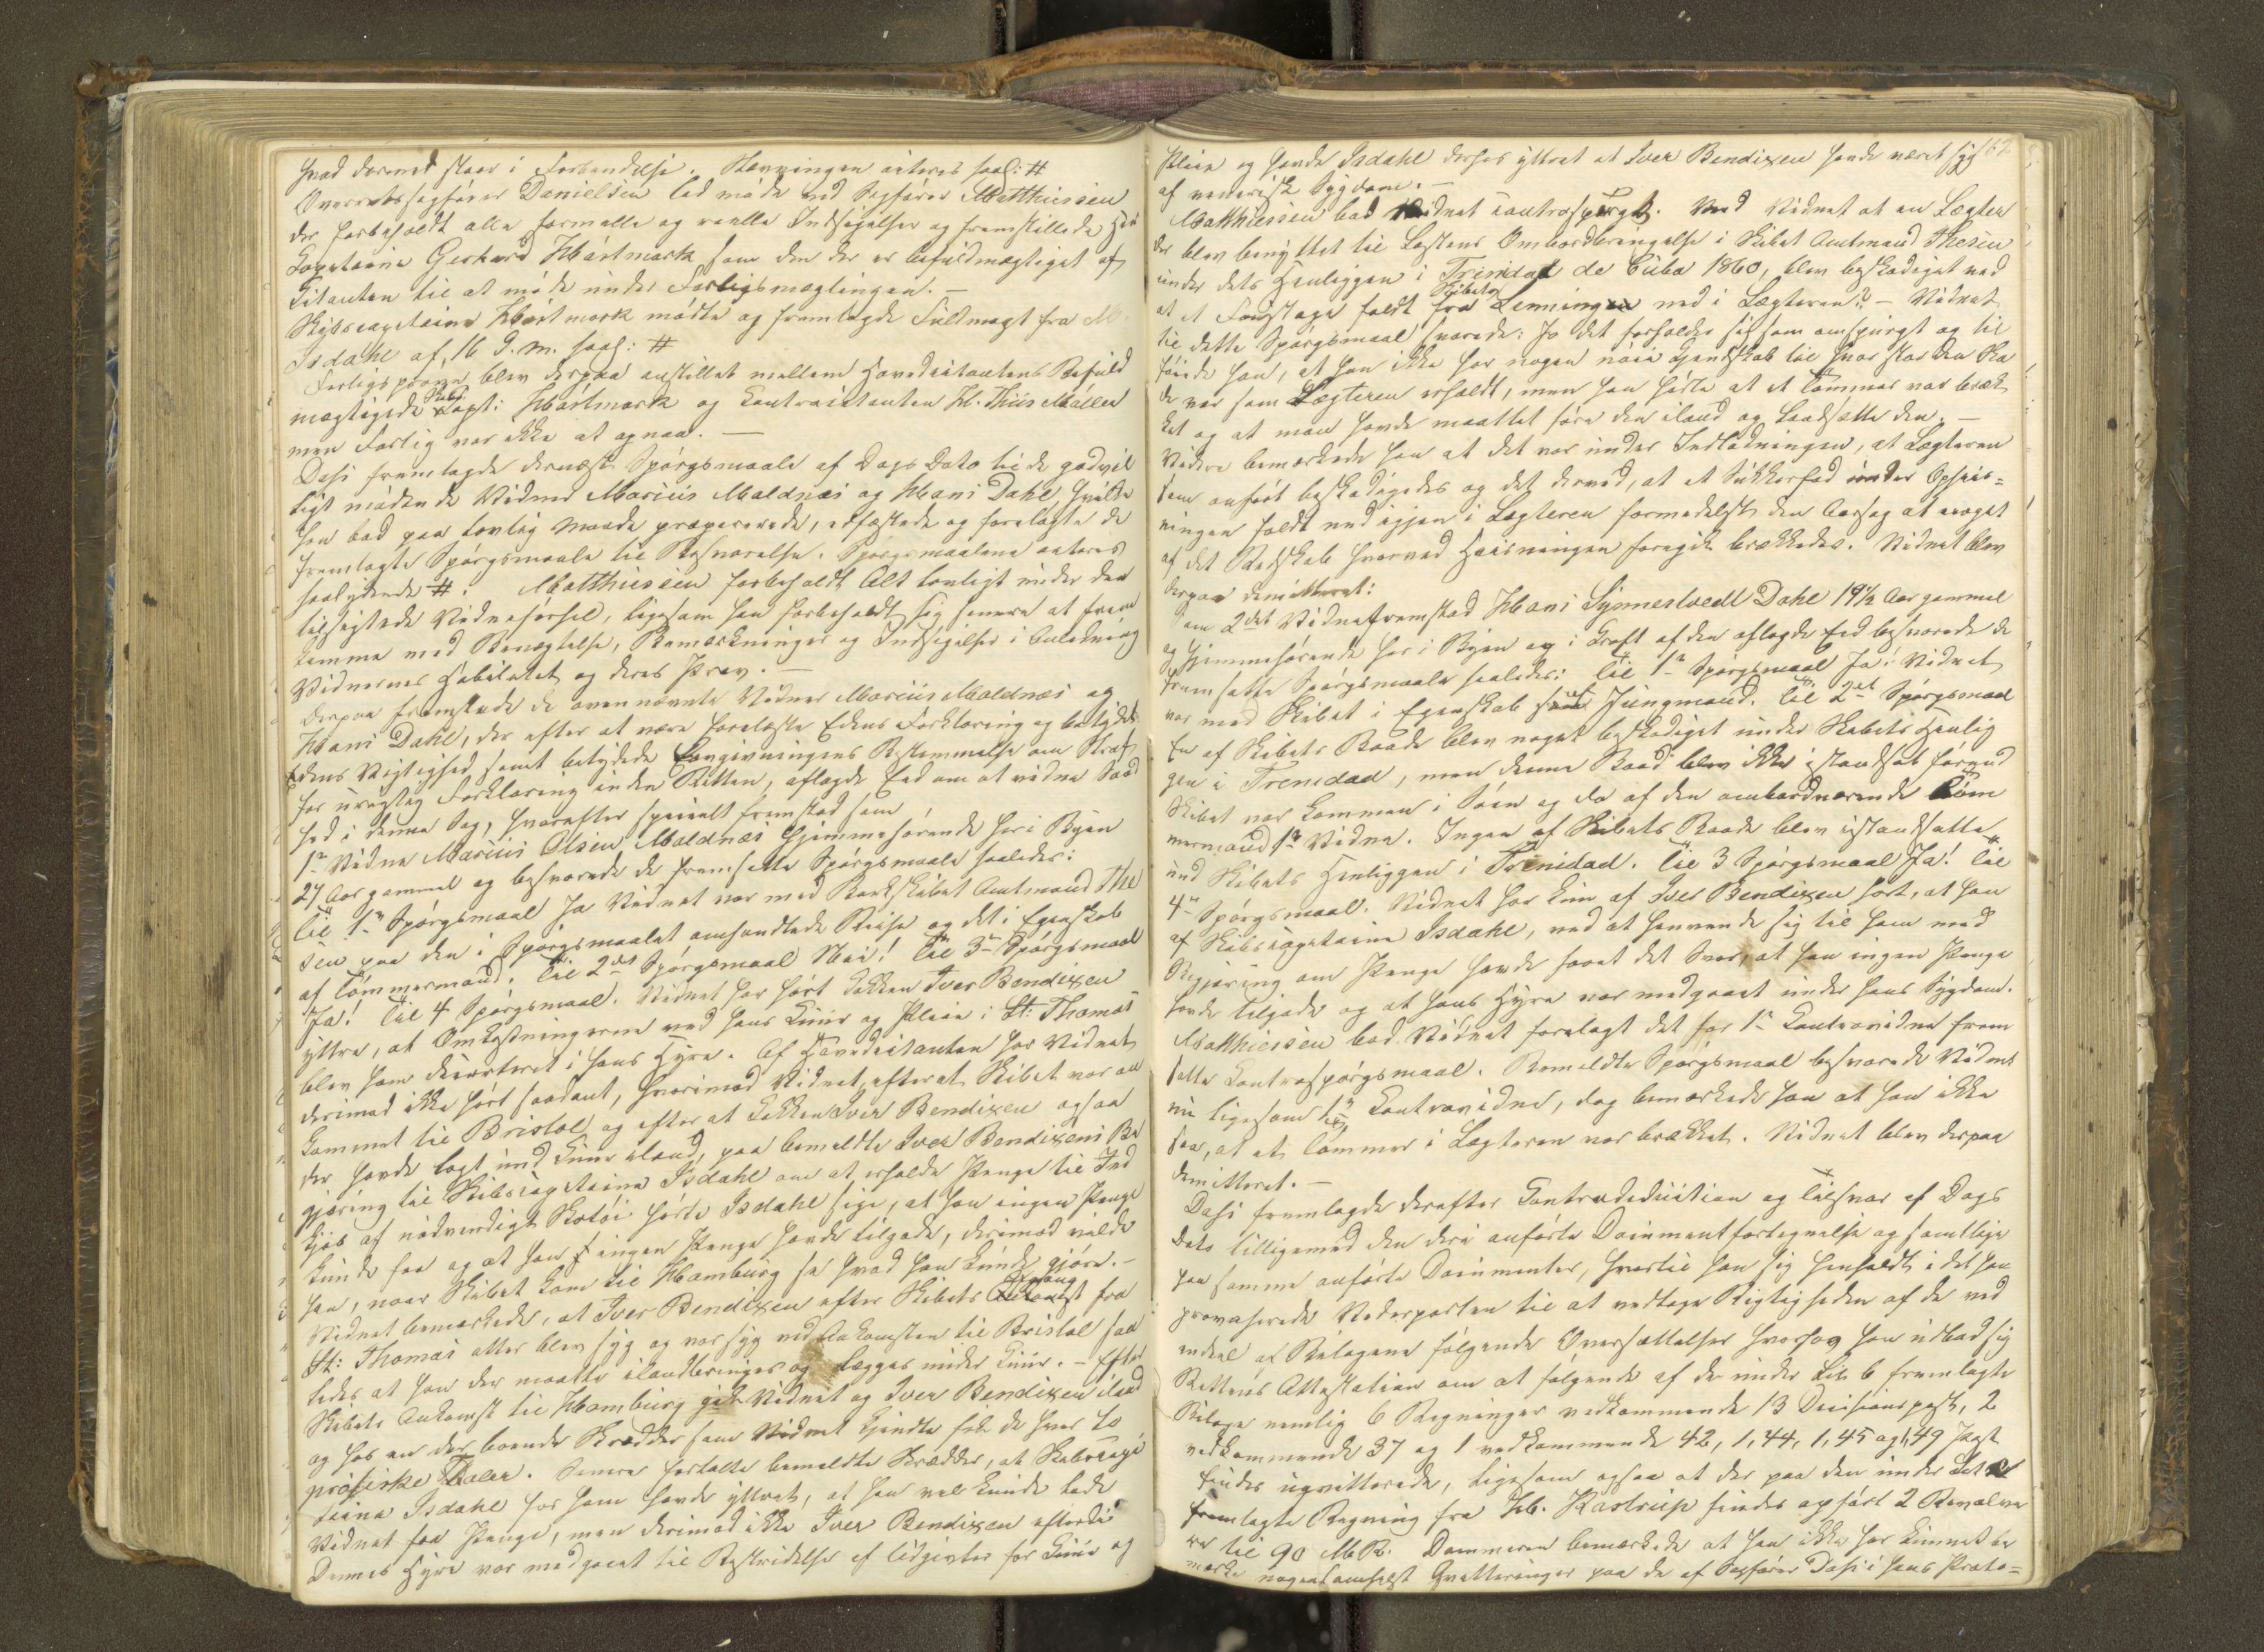 hvad dermed staar i Forbindelse. Stævningen acteres saal: #
Overretssagfører Danielsen lod møde ved Sagfører Matthiessen
der forbeholdt alle formelle og reelle Indsigelser og fremstillede
Capitaine Gerhard Hartmark som den der er befuldmægtiget af
Citanten til at møde under Forligsmæglingen. —
Skibscapitaine Hartmark mødte og fremlagde Fuldmagt fra M.
Isdahl af 16 d. M. saal: #
Forligsprøve blev derpaa anstillet mellem Hovedcitantens Befuld
mægtigede Skibs Capt: Hartmark og Contracitanten H. Thiis Møller
men Forlig var ikke at opnaa. —
Dahl fremlagde dernæst Spørgsmaale af Dags Dato til de godvil
ligt mødende Vidner Marius Maldnæs og Hans Dahl, hvilke
han bad paa lovlig Maade præparerede, edfæstede og forelagte de
fremlagte Spørgsmaale til Besvarelse. Spørgsmaalene acteres
saalydende #. Matthiessen forbeholdt Alt lovligt under den
tilsigtede Vidneførsel, ligesom han forbeholdt sig senere at frem
komme med Benægtelse, Bemærkninger og Indsigelser i Anledning
Vidnernes Habilitet og deres Prov. —
Derpaa fremstode de ovennævnte Vidner Marius Maldnæs og
Hans Dahl, der efter at være forelæste Edens Forklaring og betydede
Edens Vigtighed samt betydede Lovgivningens Bestemmelse om Straf
for urigtig Forklaring inden Retten, aflagde Eed om at vidne Sand
hed i denne Sag, hvorefter specielt fremstod som
1ste Vidne Marius Olsen Maldnæs hjemmehørende her i Byen
27 Aar gammel og besvarede de fremsatte Spørgsmaale saaledes:
Til 1ste Spørgsmaal Ja Vidnet var med Barkskibet Amtmand The
sen paa den i Spørgsmaalet omhandlede Reise og det i Egenskab
af Tømmermand. Til 2det Spørgsmaal Nei! Til 3die Spørgsmaal
Ja! Til 4 Spørgsmaal. Vidnet har hørt Kokken Iver Bendixen
yttre, at Omkostningerne ved hans Kuur og Pleie i St: Thomas
blev ham decorteret i hans Hyre. Af Hovedcitanten har Vidnet
derimod ikke hørt saadant, hvorimod Vidnet, efterat Skibet var an
kommet til Bristol og efter at Kokken Iver Bendixen ogsaa
der havde lagt und Kuur iland, paa bemeldte Iver Bendixens Be
gjæring til Skibscapitaine Isdahl om at erholde Penge til Ind
kjøb af nødvendigt Skotøi hørte Isdahl sige, at han ingen Penge
kunde faa og at han ingen Penge havde tilgode, derimod vilde
han, naar Skibet kom til Hamburg se hvad han kunde gjøre. —
Vidnet bemærkede, at Iver Bendixen efter Skibets Afgang fra
St: Thomas atter blev syg og var syg ved Ankomsten til Bristol saa
ledes at han der maatte ilandbringes og lægges under Kuur. — Efter
Skibets Ankomst til Hamburg gik Vidnet og Iver Bendixen iland
og hos en der boende Skrædder som Vidnet kjendte fik de hver 40
prøsiske Thaler. Senere fortalte bemeldte Skrædder, at Skibscapi
taine Isdahl for ham havde yttret, at han vel kunde lade
Vidnet faa Penge, men derimod ikke Iver Bendixen efterdi
Dennes Hyre var medgaaet til Bestridelse af Udgivter for Kuur og
Pleie og havde Isdahl derhos yttret at Iver Bendixen havde været syg
af venerisk Sygdom. —
Matthiessen bad Vidnet contraspørgt. Veed Vidnet at en Lægter
der blev benyttet til Lastens Ombordbringelse i Skibet Amtmand Thesen
under dets Henliggen i Trinidat de Cuba 1860, blev beskadiget ved
at et Foustage faldt fra Skibets Lenningen ned i Lægteren? — Vidnet
til dette Spørgsmaal svarede: Jo det forholder sig som omspurgt og til
føiede han, at han ikke har nogen nøie Kjendskab til hvor stor den Ska
de var som Lægteren erholdt, men han hørte at et Tømmer var bræk
ket og at man havde maattet føre den iland og landsætte den. —
Videre bemærkede han at det var under Indladningen, at Lægteren
som anført beskadigedes og det derved, at et Sukkerfad under Ophis=
ningen faldt ned igjen i Lægteren formedelst den Aarsag at noget
af det Redskab hvorved Heisningen foregik brækkedes. Vidnet blev
derpaa dimitteret:
om 2det Vidne fremstod Hans Synnestvedt Dahl 19½ Aar gammel
og hjemmehørende her i Byen og i Kraft af den aflagde Eed besvarede de
fremsatte Spørgsmaale saaledes: Til 1ste Spørgsmaal Ja! Vidnet
var med Skibet i Egenskab af Jungmand. Til 2det Spørgsmaal
En af Skibets Baade blev noget beskadiget under Skibets Henlig
gen i Trenidad, men denne Baad blev ikke istandsat førend
Skibet var kommen i Søen og da af den ombordværende Tøm
mermand 1ste Vidne. Ingen af Skibets Baade blev istandsatte
und Skibets Henliggen i Trinidad. Til 3 Spørgsmaal Ja! Til
4de Spørgsmaal. Vidnet har kun af Iver Bendixen hørt, at han
af Skibscapitaine Isdahl, ved at henvende sig til ham med
Begjæring om Penge havde faaet det Svar, at han ingen Penge
havde tilgode og at hans Hyre var medgaaet under hans Sygdom.
Matthiessen bad Vidnet forelagt det for 1ste Contravidne frem
satte Contraspørgsmaal. Bemeldte Spørgsmaal besvarede Vidnet
nu ligesom 1ste Contravidne, dog bemærkede han at han ikke
saa, at et Tømmer i Lægteren var brækket. Vidnet blev derpaa
dimitteret. —
Dahl fremlagde derefter Contradeduction og Tilsvar af Dags
Dato tilligemed den deri anførte Documentfortegnelse og samtlige
paa samme anførte Documenter, hvortil han sig henholdt idet han
provocerede Vederparten til at vedtage Rigtigheden af de ved
endeel af Bilagene følgende Oversættelser hvorhos han udbad sig
Rettens Attestation om at følgende af de under Lit. 6 fremlagte
Bilage nemlig 6 Regninger vedkommende 13 Decisionspost, 2
vedkommende 37 og 1 vedkommende 42, 1, 44, 1, 45 og 1, 49 Post
findes uqvitterede, ligesom ogsaa at der paa den under Lit
fremlagte Regning fra H. Kastrup findes opført 2 Revolve
re til 90 M.B. Dommeren bemærkede at han ikke har kunnet be
mærke nogensomhelst Qvitteringer paa de af Sagfører Dahl i hans Proto=